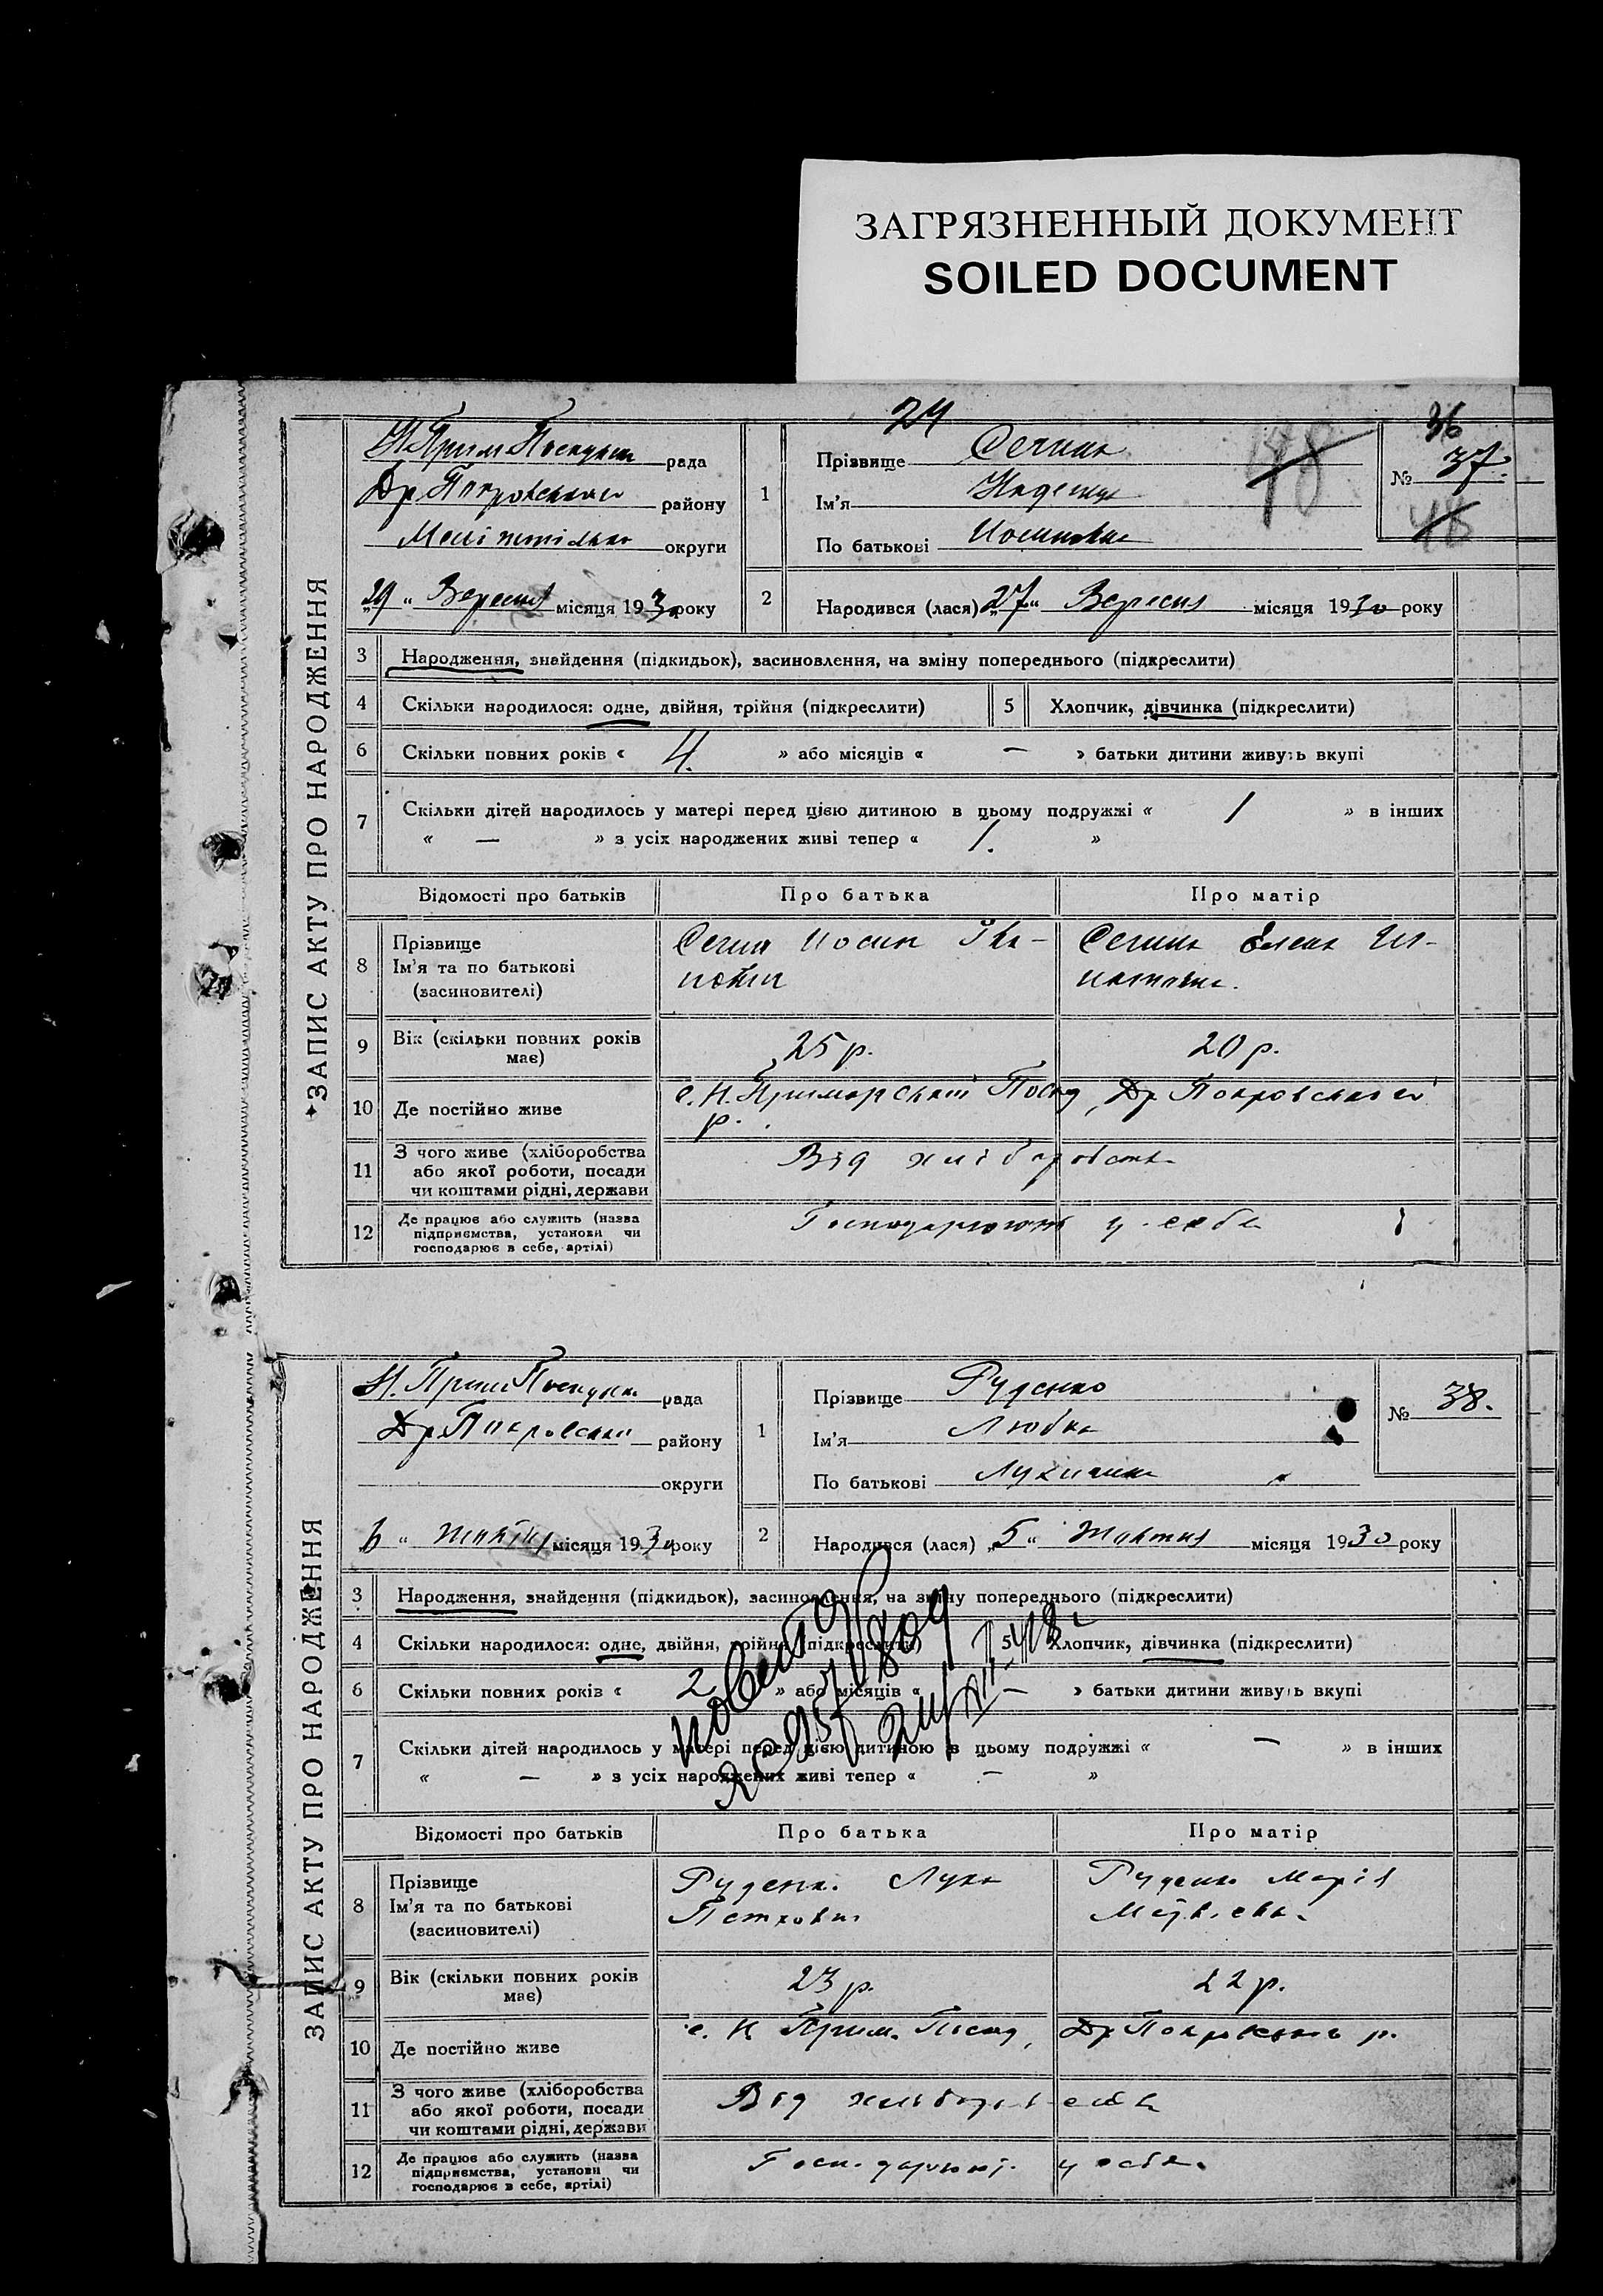 ЗАГРЯЗНЕННЫЙ ДОКУМЕНТ
SOILED DOCUMENT
24
36
ЗАПИС АКТУ ПРО НАРОДЖЕННЯ
рада
району
округи
„29“ Вересня місяця 1930 року
1
Прізвище Сегина
Ім'я
По батькові
48
№ 37.
48
2
Народився (лася) „27“ Вересня місяця 1930 року
3 Народження, знайдення (підкидьок), засиновлення, на зміну попереднього (підкреслити)
4 Скільки народилося: одне, двійня, трійня (підкреслити)
5 Хлопчик, дівчинка (підкреслити)
6 Скільки повних років « 4. » або місяців « — » батьки дитини живуть вкупі
7 Скільки дітей народилось у матері перед цією дитиною в цьому подружжі « 1 » в інших
« — » з усіх народжених живі тепер « 1. »
Відомості про батьків
Про батька
Про матір
8 Прізвище
Ім'я та по батькові
(засиновителі)
9 Вік (скільки повних років
має)
25 р.
20 р.
10 Де постійно живе
с. Н. Приморський Посад, Др. Покровського
р.
11 З чого живе (хліборобства
або якої роботи, посади
чи коштами рідні, держави
Від хліборобства
12 Де працює або служить (назва
підприємства, установи чи
господарює в себе, артілі)
Господарюють у себе
ЗАПИС АКТУ ПРО НАРОДЖЕННЯ
рада
району
округи
6 “ Жовтня місяця 1930 року
1
Прізвище Руденко
Ім'я Люба
По батькові
№ 38.
2
Народився (лася) „5“ Жовтня місяця 1930 року
3 Народження, знайдення (підкидьок), засиновлення, на зміну попереднього (підкреслити)
4 Скільки народилося: одне, двійня, трійня (підкреслити)
5 Хлопчик, дівчинка (підкреслити)
6 Скільки повних років « 2 » або місяців « — » батьки дитини живуть вкупі
7 Скільки дітей народилось у матері перед цією дитиною в цьому подружжі « — » в інших
« — » з усіх народжених живі тепер « — »
Відомості про батьків
Про батька
Про матір
8 Прізвище
Ім'я та по батькові
(засиновителі)
Руденко Лука
Петрович
Руденко Марія
9 Вік (скільки повних років
має)
23 р.
22 р.
10 Де постійно живе
с. Н Прим. Посад, Др Покровського р.
11 З чого живе (хліборобства
або якої роботи, посади
чи коштами рідні, держави
Від хліборобства
12 Де працює або служить (назва
підприємства, установи чи
господарює в себе, артілі)
у себе